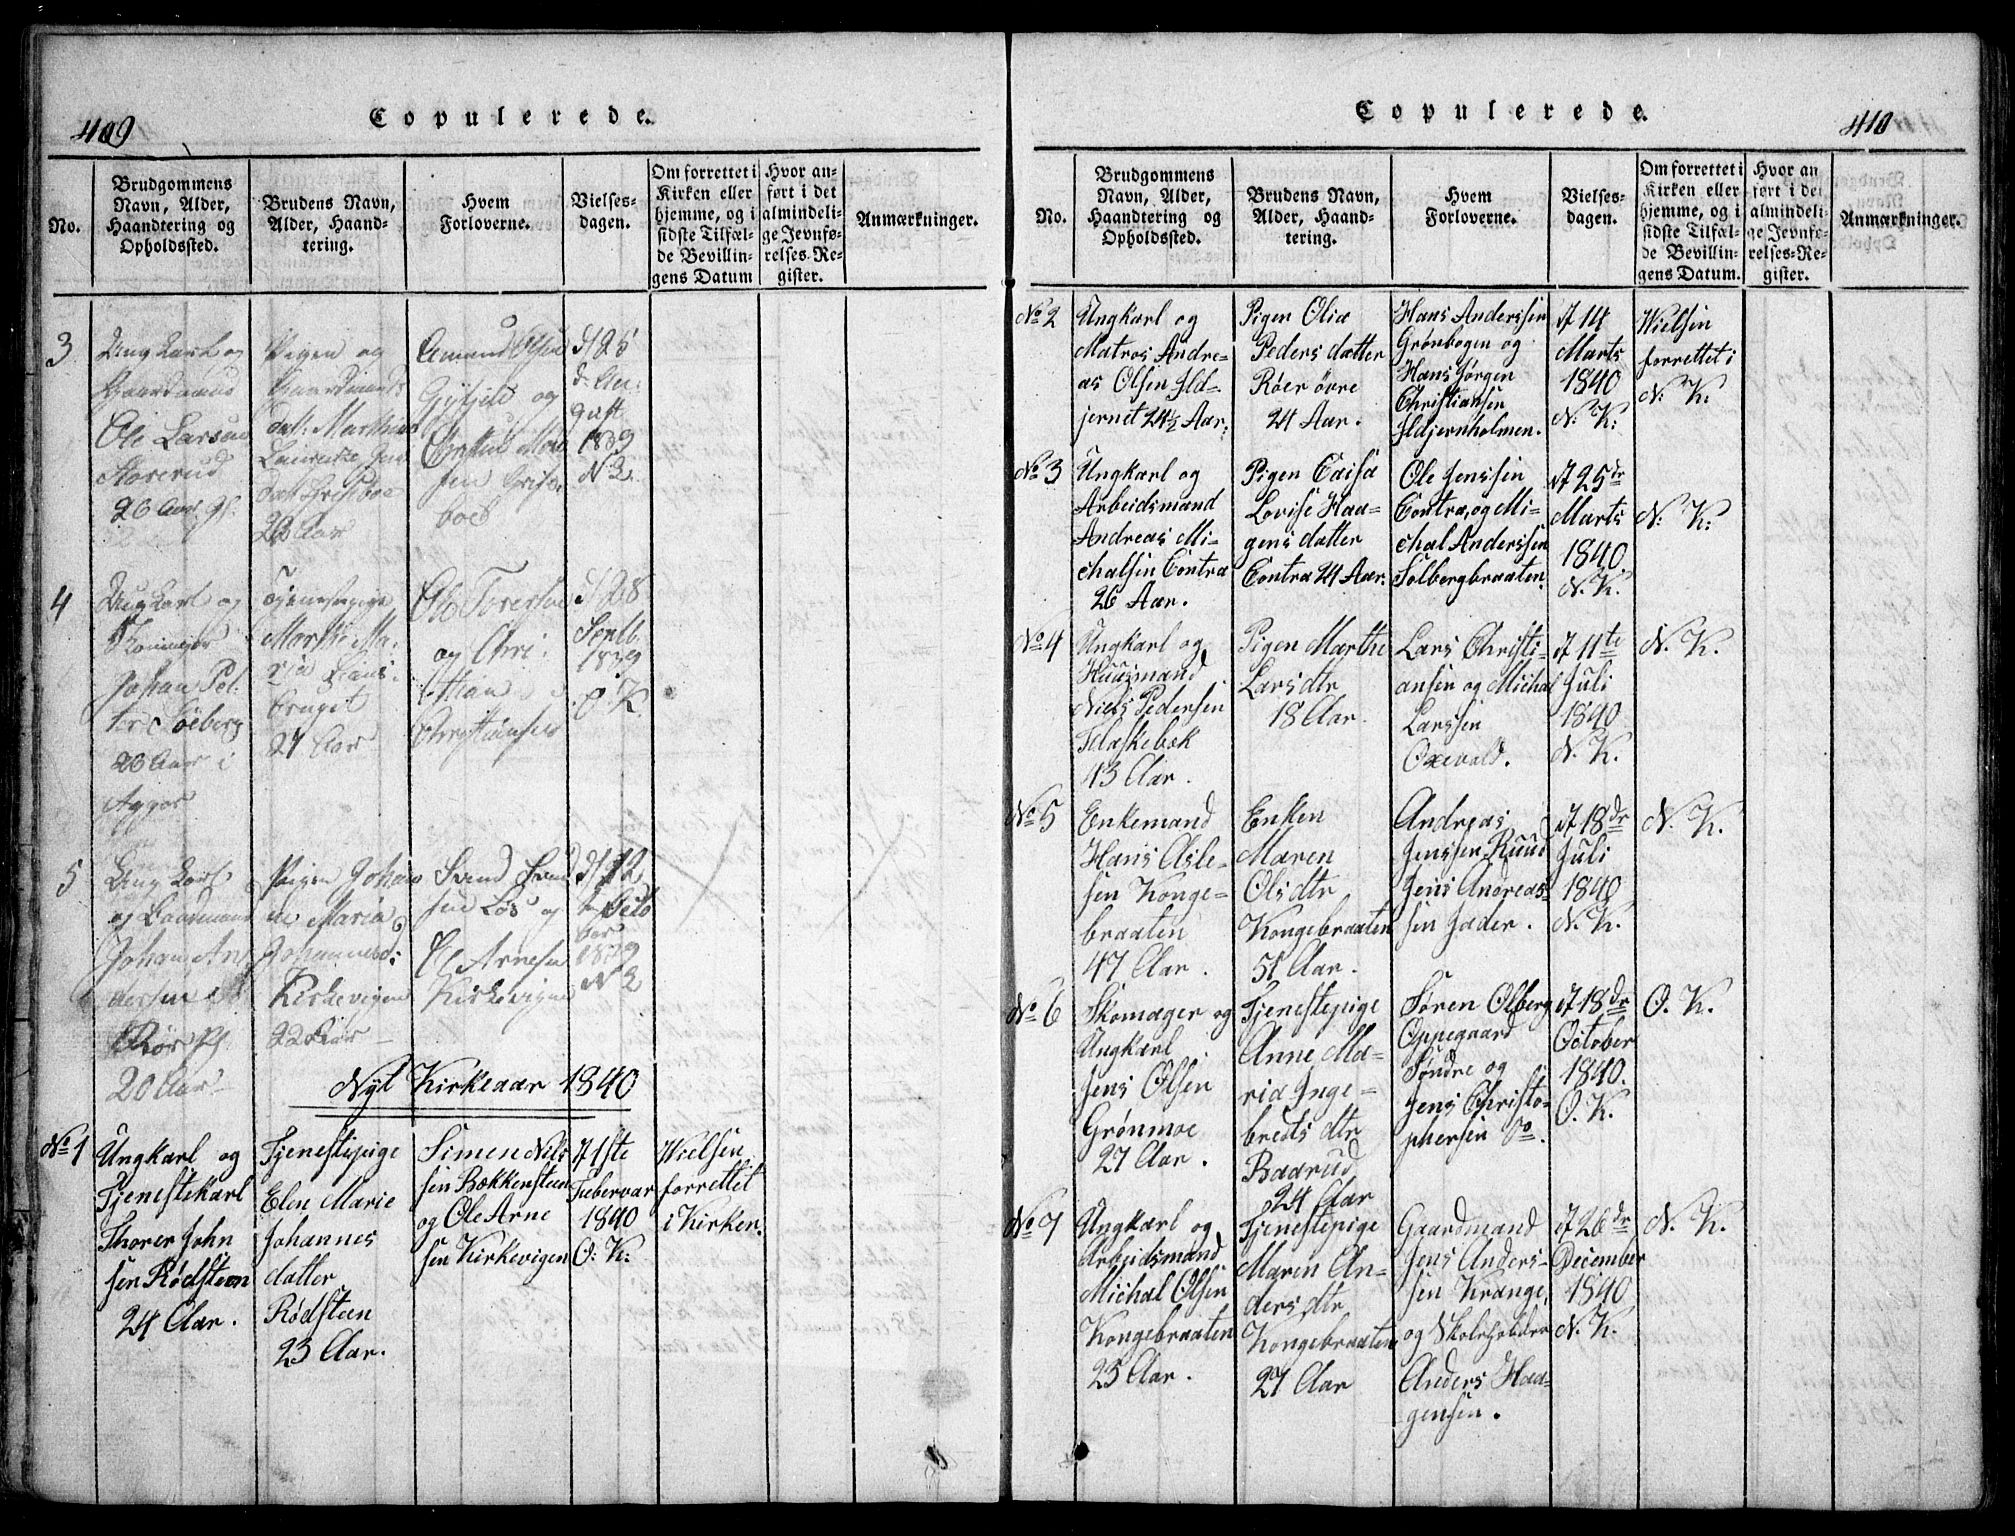 409
Copulerede.
No.
Brudgommens
Navn, Alder,
Haandtering og
Opholdssted.
Brudens Navn,
Alder, Haand-
tering.
Hvem
Forloverne.
Vielses-
dagen.
Om forrettet i
Kirken eller
hjemme, og i
sidste Tilfæl-
de Bevillin-
gens Datum
Hvor an-
ført i det
almindeli-
ge Jevnfø-
relses-Re-
gister.
Anmærkninger.
3
Ungkarl og
Gaardmand
Ole Larsen
Storerud
26 Aar
Pigen og
Gaardmands
dat: Marthe
23 Aar
Amund Olsen
og
d 25
d: Au-
gust
1839
N
4
Ungkarl og
Johan Pet-
ter Søeberg
23 Aar i
Aggers
Tjenestepige
Marthe Ma-
ria
bruget
27 Aar
Ole Toresen
og Chri-
stian
Christiansen
d 28
Septb.
1839
O K.
5
Ungkarl
og Baadsmand
Johan An-
dersen
Rør
20 Aar
Pigen Johan
ne Maria
Johannesd:
Kirkevigen
22 Aar
Svend Svend
sen Løs og
Ole Arnesen
Kirkevigen
d 12
Octo
ber
1839
N
Nyt Kirkeaar 1840
No 1
Ungkarl og
Tjenestekarl
Thorer John
sen Rødsteen
24 Aar.
Tjenestepige
Elen Marie
Johannes
datter
Rødsteen
23 Aar.
Simen Nils
sen Bakkensteen
og Ole Arne
sen Kirkevigen
d 1ste
Febervar
1840
O: K:
Wielsen
forrettet
i Kirken.
410
Copulerede.
No.
Brudgommens
Navn, Alder,
Haandtering og
Opholdssted.
Brudens Navn,
Alder, Haand-
tering.
Hvem
Forloverne.
Vielses-
dagen.
Om forrettet i
Kirken eller
hjemme, og i
sidste Tilfæl-
de Bevillin-
gens Datum.
Hvor an
ført i det
almindeli-
ge Jevnfø-
relses-Re-
gister.
Anmærkninger.
No 2
Ungkarl og
Matros Andre-
as Olsen Ild-
jernet 24½ Aar:
Pigen Olia
Peders datter
Røer øvre
24 Aar.
Hans Anderssen
Grønbogen og
Hans Jørgen
Christiansen
Ildjernholmen.
d 14
Marts
1840
N: K:
Wielsen
forrettet i
N: K.
No 3
Ungkarl og
Arbeidsmand
Andreas Mi-
chalsen Contra
26 Aar.
Pigen Caisa
Lovise Haa-
gens datter
Contra 24 Aar:
Ole Jenssen
Contra, og Mi-
chal Anderssen
Solbergbraaten.
d 25de
Marts
1840.
N. K.
N: K:
No 4
Ungkarl og
Huusmand
Niels Pedersen
Flaskebæk
43 Aar.
Pigen Marthe
Larsdtr
18 Aar.
Lars Christi-
ansen og Michal
Larssen
Oxevald.
d 11te
Juli
1840
N. K.
N. K.
No 5
Enkemand
Hans Asle-
sen Konge-
braaten
47 Aar.
Enken
Maren
Olsdtr
Kongebraaten
51 Aar.
Andreas
Jenssen Ruud
Jens Andreas-
sen Jader.
d 18de
Juli
1840
N. K.
N. K.
No 6
Skomager og
Ungkarl
Jens Olsen
Grønmoe
27 Aar.
Tjenestepige
Anne Ma-
ria Inge-
brets dtr
Baarud
24 Aar
Søren Olberg
Oppegaard
Søndre og
Jens Christo-
phersen do.
d 18de
October
1840.
O. K.
O. K.
No 7
Ungkarl og
Arbeidsmand
Michal Olsen
Kongebraaten
23 Aar.
Tjenestepige
Maren An-
dersdtr
Kongebraaten
27 Aar
Gaardmand
Jens Anders-
sen Krange,
og Skoleholder
Anders Haa-
gensen.
d 26de
December
1840
N. K.
N. K.